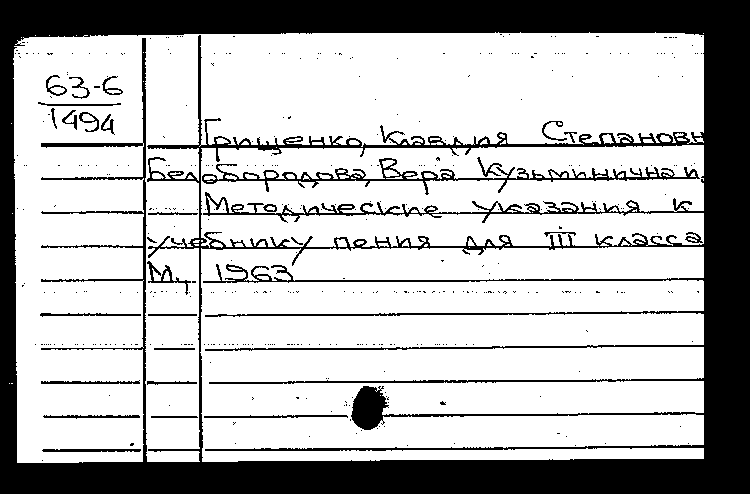 63-6
1494
Грищенко, Клавдия Степановн
Белобородова, Вера Кузьминична и.
Методические указания к
учебнику пения для III класса
М., 1963